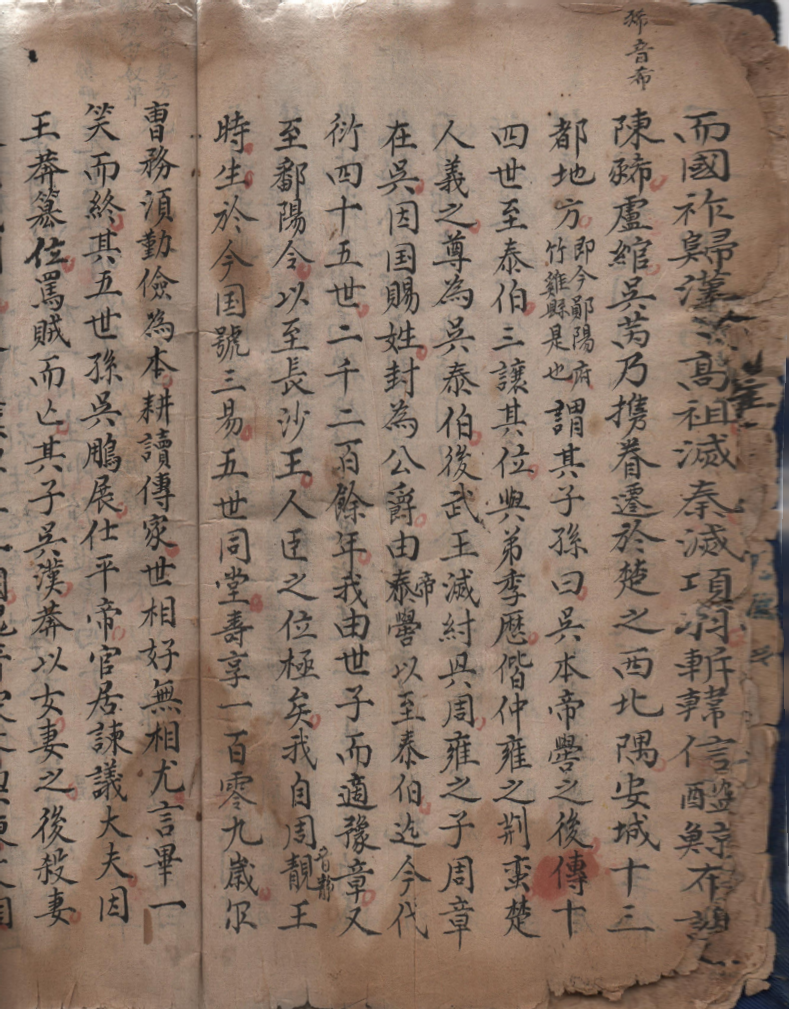 豨音希
而國祚歸漢 高祖滅秦滅項羽斬韓信醢鯨布
陳豨盧綰吳芮乃擕眷遷於楚之西北隅安城十三
都地方即今鄖陽府竹雞縣是也謂其子孫曰吳本帝嚳之後傳十
四世至泰伯三讓其位與弟季歷偕仲雍之荆蛮楚
人義之尊為吳泰伯後武王滅紂具周雍之子周章
在吳因国賜姓封為公爵由帝嚳以至泰伯迄今代
衍四十五世二千二百餘年我由世子而適豫章又
至鄱陽令以至長沙王人臣之位極矣我自周靚音靜王
時生於今国號三易五世同堂壽享一百零九歲尔
曹務須勤儉為本耕讀傳家世相好無相尤言畢一
笑而終其五世孫吳鵬展仕平帝官居諫議大夫因
王莽篡位罵賊而亡其子吳漢莽以女妻之後殺妻